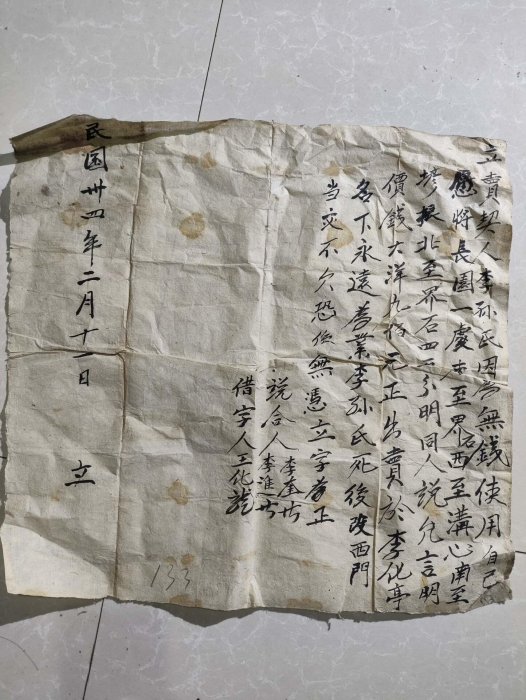 立賣契人李孫氏因為無錢使用自己
愿將長園一處东至界石西至溝心南至
根北至界石四至分明同人說允言明
價錢大洋九佰元正出賣於李化亭
名下永遠為業李孫氏死後改西門
当交不欠恐后無憑立字為正
說合人李奎
李進
借字人王化龍
民国卅四年二月十一日 立
133